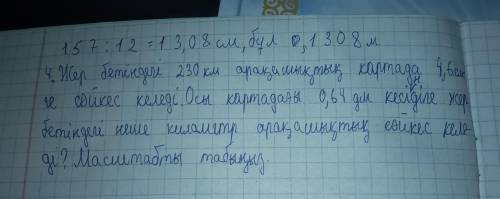 157:12=13,08 см, бұл 0,1308 м
4. Жер бетіндегі 230 км арақашықтық картада 4,6 см
ге сәйкес келеді. Осы картадағы 0,64 дм кесіндіге жер
бетіндегі неше километр арақашықтық сәйкес келе-
ді? Масштабты табыңыз.